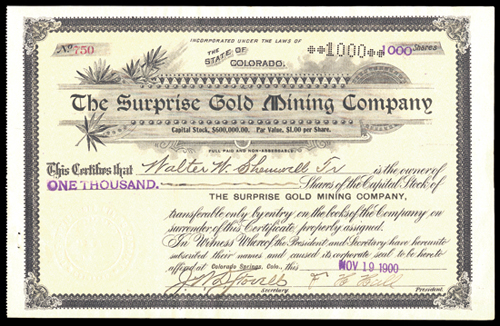 INCORPORATED UNDER THE LAWS OF
No 750
THE STATE OF COLORADO.
**1000** 1000 Shares
The Surprise Gold Mining Company
Capital Stock, $600,000.00. Par Value, $1.00 per Share.
FULL PAID AND NON-ASSESSABLE.
This Certifies that Walter W. Tr is the owner of
ONE THOUSAND. Shares of the Capital Stock of
THE SURPRISE GOLD MINING COMPANY,
transferable only by entry on the books of the Company on
surrender of this Certificate properly assigned.
In Witness Whereof the President and Secretary have hereunto
subscribed their names and caused its corporate seal to be hereto
affixed at Colorado Springs, Colo., this NOV 19 1900
F H Hall
Secretary. President.